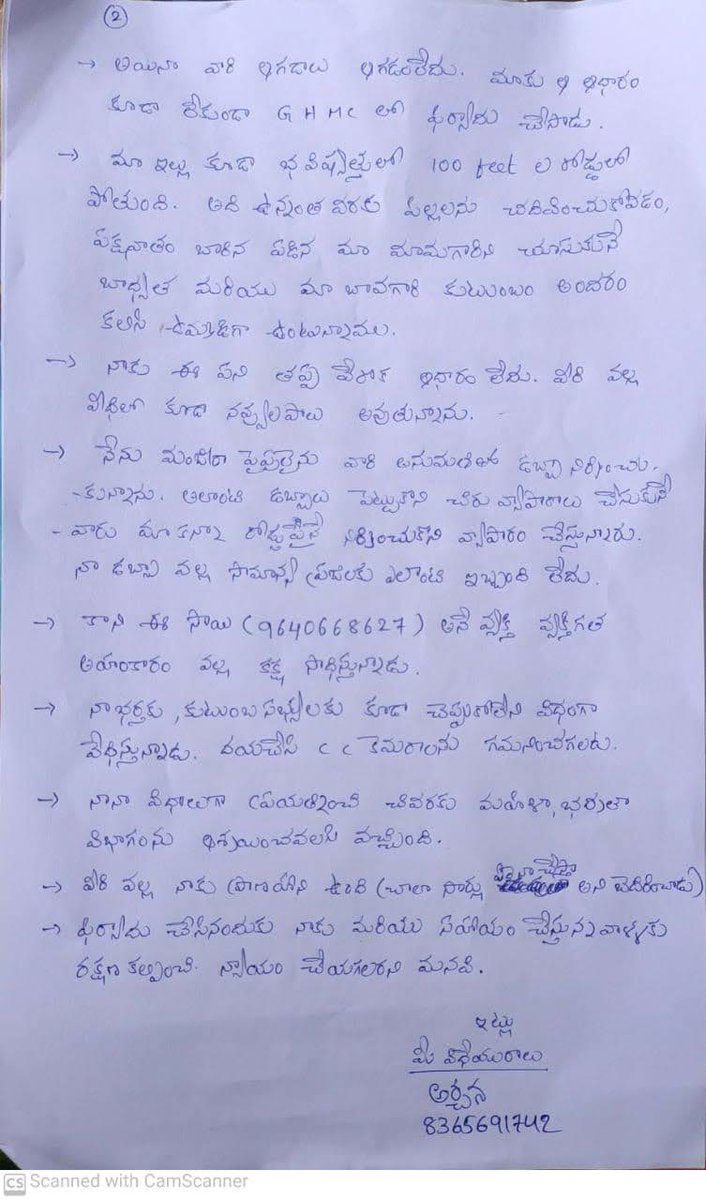 2
→ అయినా వారి ఆగడాలు ఆగడంలేదు. మాకు ఆ ఆధారం
కూడా లేకుండా GHMC లో ఫిర్యాదు చేసాడు.
→ మా ఇల్లు కూడా భవిష్యత్తులో 100 feet ల రోడ్డులో
పోతుంది. అది ఉన్నంత వరకు పిల్లలను చదివించుకోవడం,
పక్షవాతం బారిన పడిన మా మామగారిని చూసుకునే
బాధ్యత మరియు మా బావగారి కుటుంబం అందరం
కలిసి ఉమ్మడిగా ఉంటున్నాము.
→ నాకు ఈ పని తప్ప వేరొక ఆధారం లేదు. వీరి వల్ల
వీధిలో కూడా నవ్వులపాలు అవుతున్నాను.
→ నేను మంజీరా పైపులైను వారి అనుమతితో డబ్బా నిర్మించు-
-కున్నాను. అలాంటి డబ్బాలు పెట్టుకొని చిరు వ్యాపారాలు చేసుకునే
-వారు మా కన్నా రోడ్డుపైనే నిర్మించుకొని వ్యాపారం చేస్తున్నారు.
నా డబ్బా వల్ల సామాన్య ప్రజలకు ఎలాంటి ఇబ్బంది లేదు.
→ కాని ఈ సాయి (9640668627) అనే వ్యక్తి వ్యక్తిగత
అహంకారం వల్ల కక్ష సాధిస్తున్నాడు.
→ నా భర్తకు, కుటుంబ సభ్యులకు కూడా చెప్పుకోలేని విధంగా
వేధిస్తున్నాడు. దయచేసి CC కెమెరాలను గమనించగలరు.
→ నానా విధాలుగా ప్రయత్నించి చివరకు మహిళా భద్రతా
విభాగంను ఆశ్రయించవలసి వచ్చింది.
→ వీరి వల్ల నాకు ప్రాణహాని ఉంది (చాలా సార్లు అని బెదిరించాడు)
→ ఫిర్యాదు చేసినందుకు నాకు మరియు సహాయం చేస్తున్న వాళ్ళకు
రక్షణ కల్పించి న్యాయం చేయగలరని మనవి.
ఇట్లు
మీ విధేయురాలు
అర్చన
8365691742
CS Scanned with CamScanner